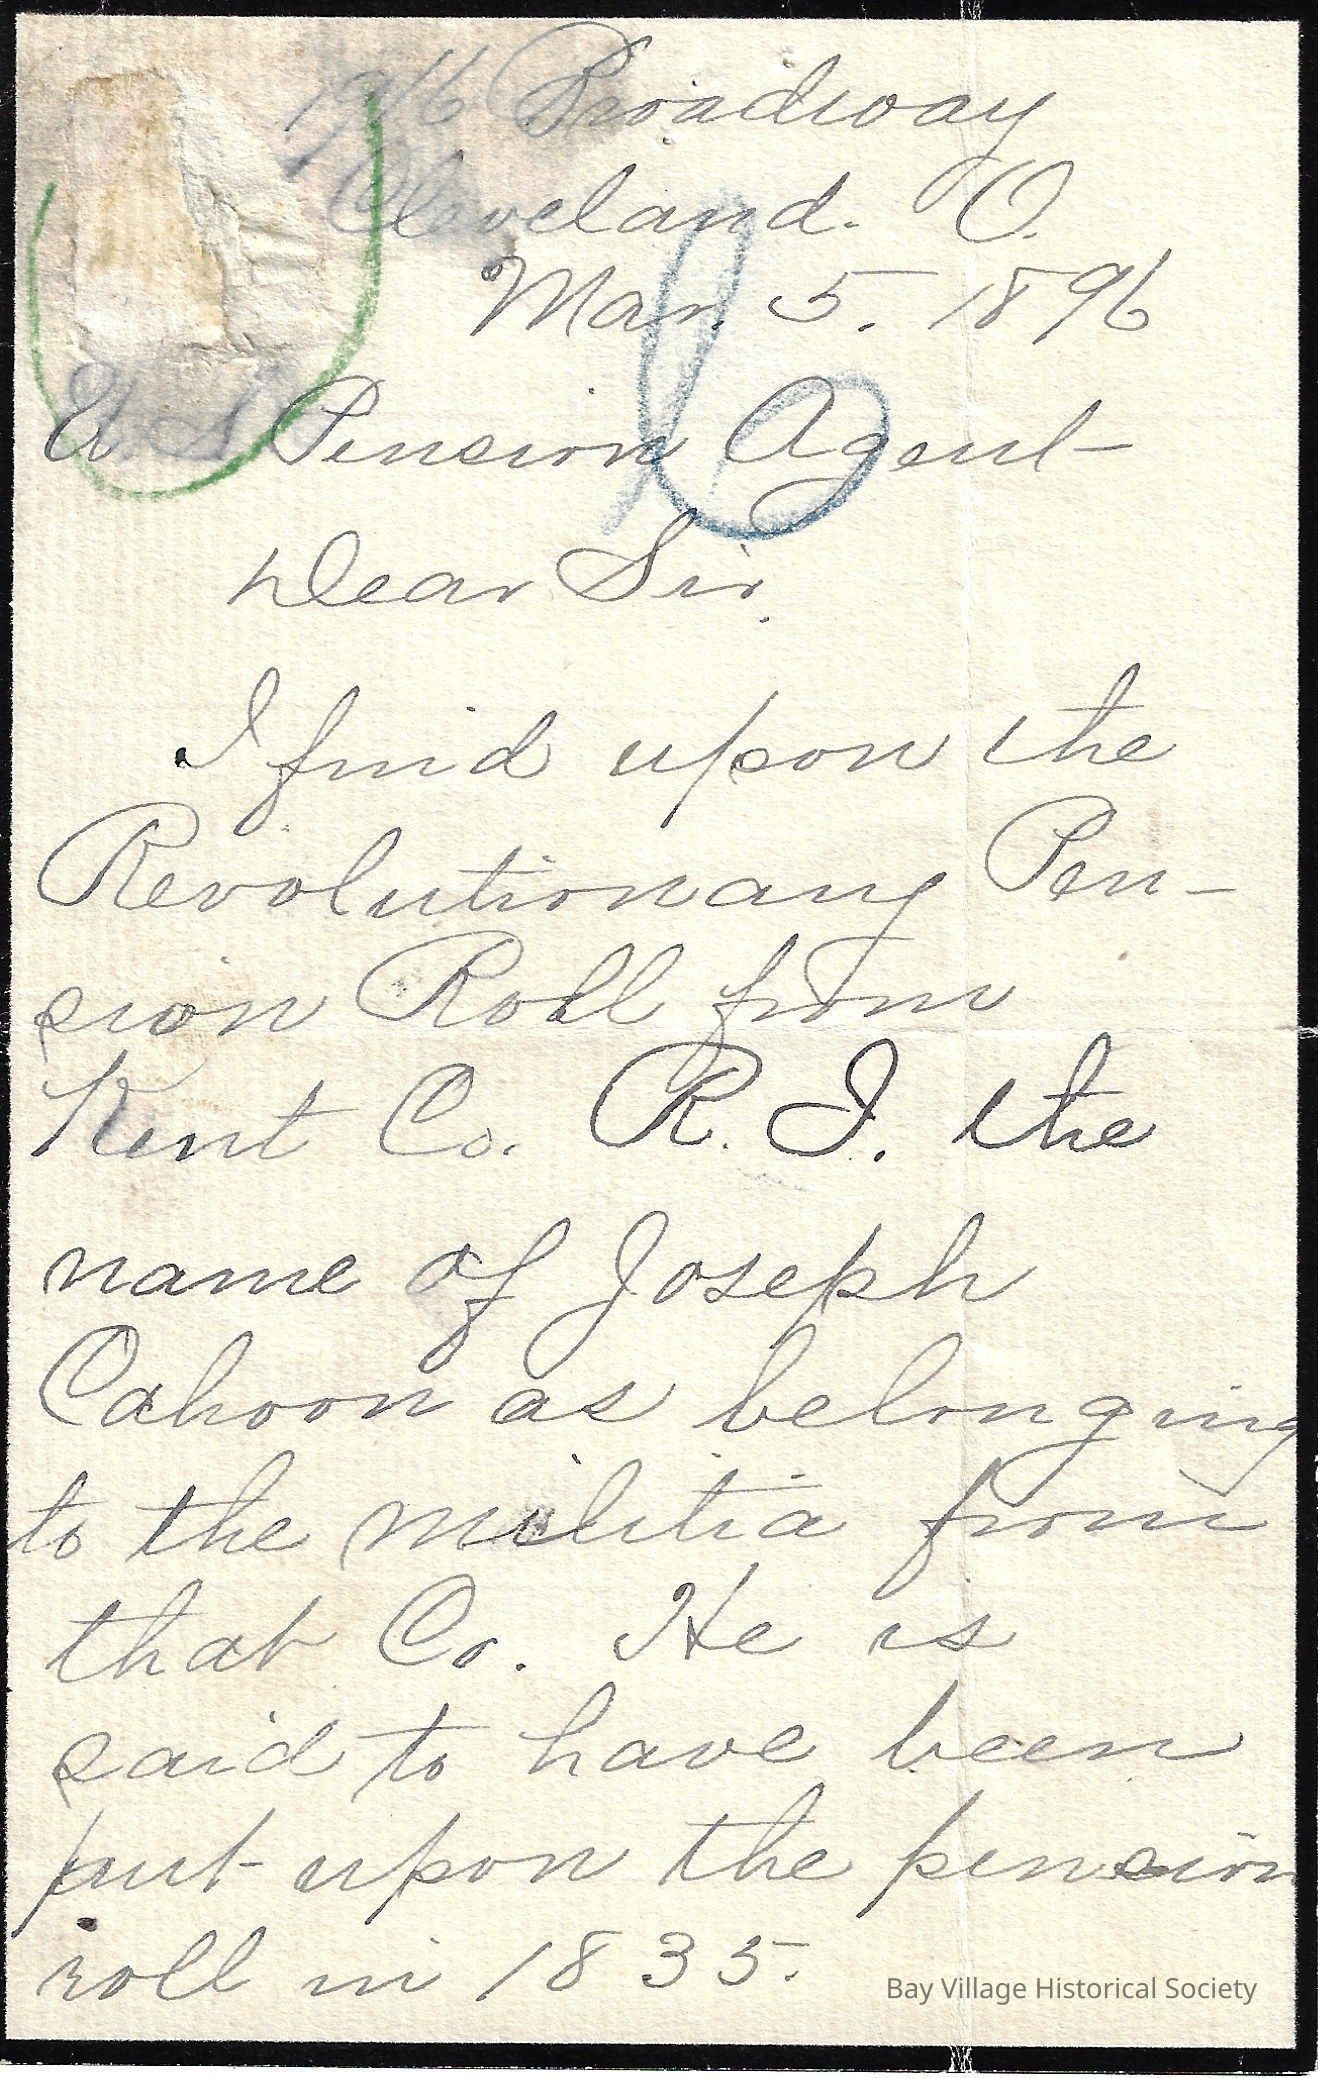 1976 Broadway
Cleveland. O.
Mar. 5. 1896
U.S. Pension Agent
Dear Sir.
I find upon the
Revolutionary Pen-
sion Roll from
Kent Co. R. I. the
name of Joseph
Cahoon as belonging
to the militia from
that Co. He is
said to have been
put upon the pension
roll in 1835.
Bay Village Historical Society